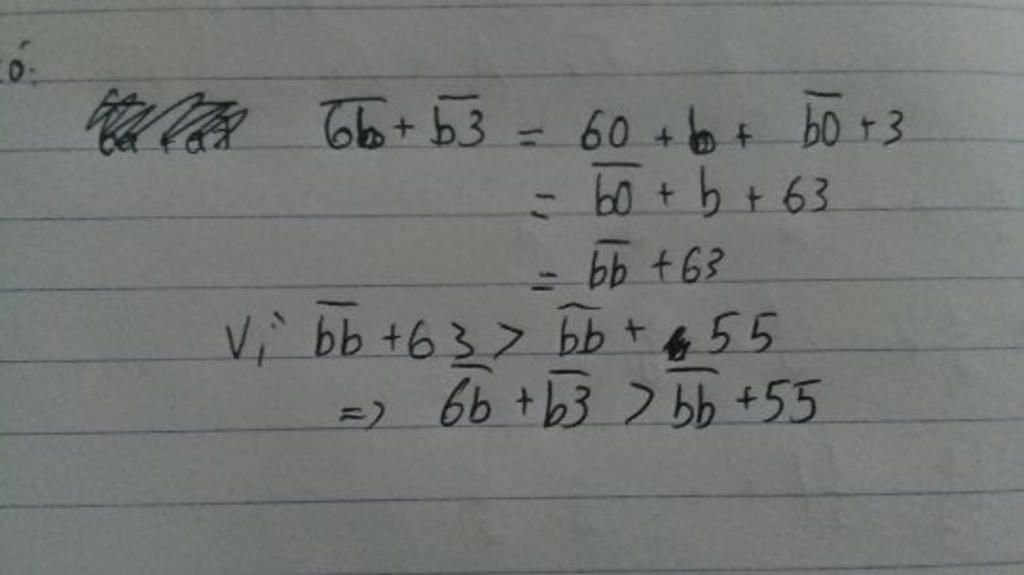 ó:
$\overline{6b} + \overline{b3} = 60 + b + \overline{b0} + 3$
$= \overline{b0} + b + 63$
$= \overline{bb} + 63$
Vì $\overline{bb} + 63 > \overline{bb} + 55$
$\Rightarrow \overline{6b} + \overline{b3} > \overline{bb} + 55$